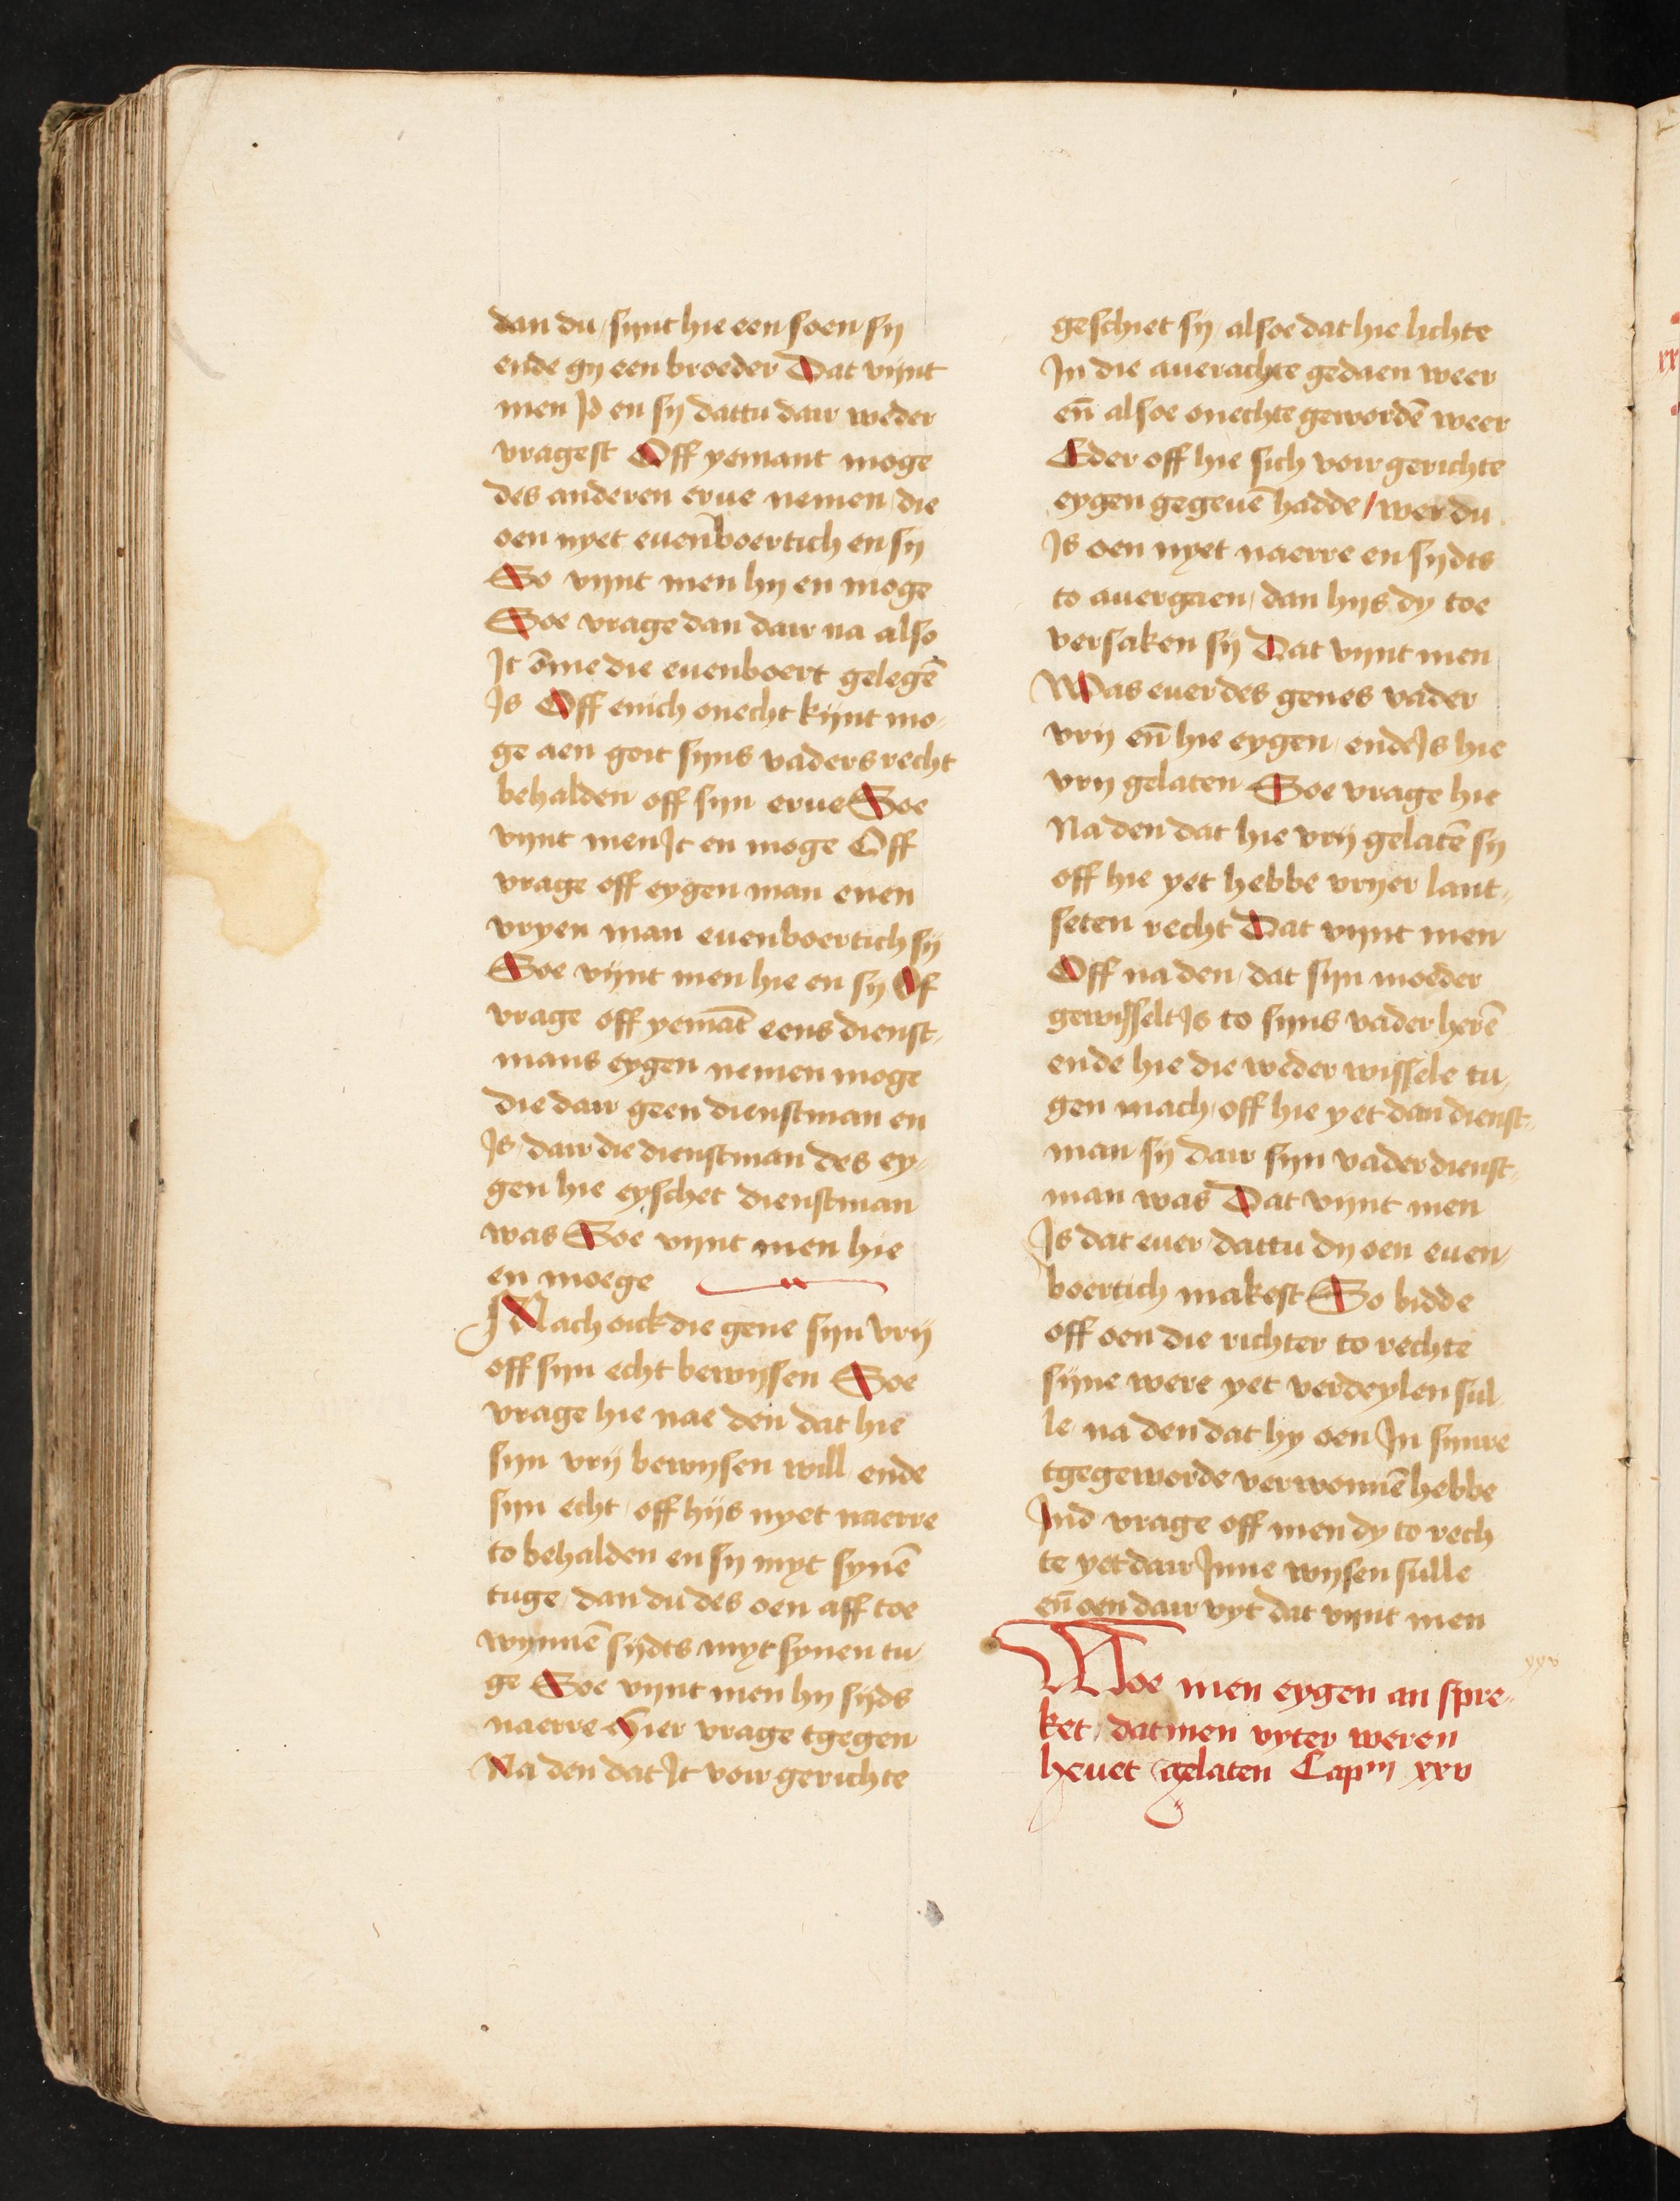 dan du / synt hie een soen sy
ende gy een broeder Dat vijnt
men Jd en sy dattu dair weder
vragest Off yemant moge
des anderen erue nemen / die
oen nyet euenboertich en sy
So vijnt men hy en moge
Soe vrage dan dair na also
Jt ōme die euenboert gelegē
Js Off enich onecht kijnt mo-
ge aen goit syns vaders recht
behalden off syn erue Soe
vijnt men Jt en moge Off
vrage off eygen man enen
vryen man euenboertich sij
Soe vijnt men hie en sy Of
vrage off yemāt eens dienst-
mans eygen nemen moge
die dair geen dienstman en
Js / dair die dienstman des ey-
gen hie eyschet dienstman
was Soe vijnt men hie
en moege
Mach oick die gene syn vrij
off syn echt bewysen Soe
vrage hie nae den dat hie
syn vrij bewysen will / ende
syn echt / off hijs nyet naerre
to behalden en sy myt synē
tuge / dan du des oen aff toe
wynnē sijdts myt synen tu-
ge Soe vijnt men hy sijds
naerre Hier vrage tgegen
Na den dat Jt voir gerichte
geschiet sy / alsoe dat hie lichte
Jn die auerachte gedaen weer
en̄ alsoe onechte gewordē weer
Eder off hie sich voir gerichte
eygen gegeuē hadde / wer du
Js oen nyet naerre en sijdts
to auergaen / dan hijs dy toe
versaken sij Dat vijnt men
Was euer des genes vader
vrij en̄ hie eygen / ende Js hie
vrij gelaten Soe vrage hie
Na den dat hie vrij gelatē sy
off hie yet hebbe vrijer lant-
seten recht Dat vijnt men
Off na den / dat syn moeder
gewisselt Js to syns vader herē
ende hie die weder wissele tu-
gen mach / off hie yet dan dienst-
man sy dair syn vader dienst-
man was Dat vijnt men
Js dat euer / dattu dy oen euen-
boertich makest So bidde
off oen die richter to rechte
sijne were yet verdeylen sul-
le / na den dat hy oen Jn synre
tgegeworde verwonnē hebbe
Jnd vrage off men dy to rech
te yet dair Jnne wysen sulle
en̄ oen dair vyt dat vijnt men
Woe men eygen an spre-
ket / dat men vyter weren
heuet gelaten Capm xxv
xxv